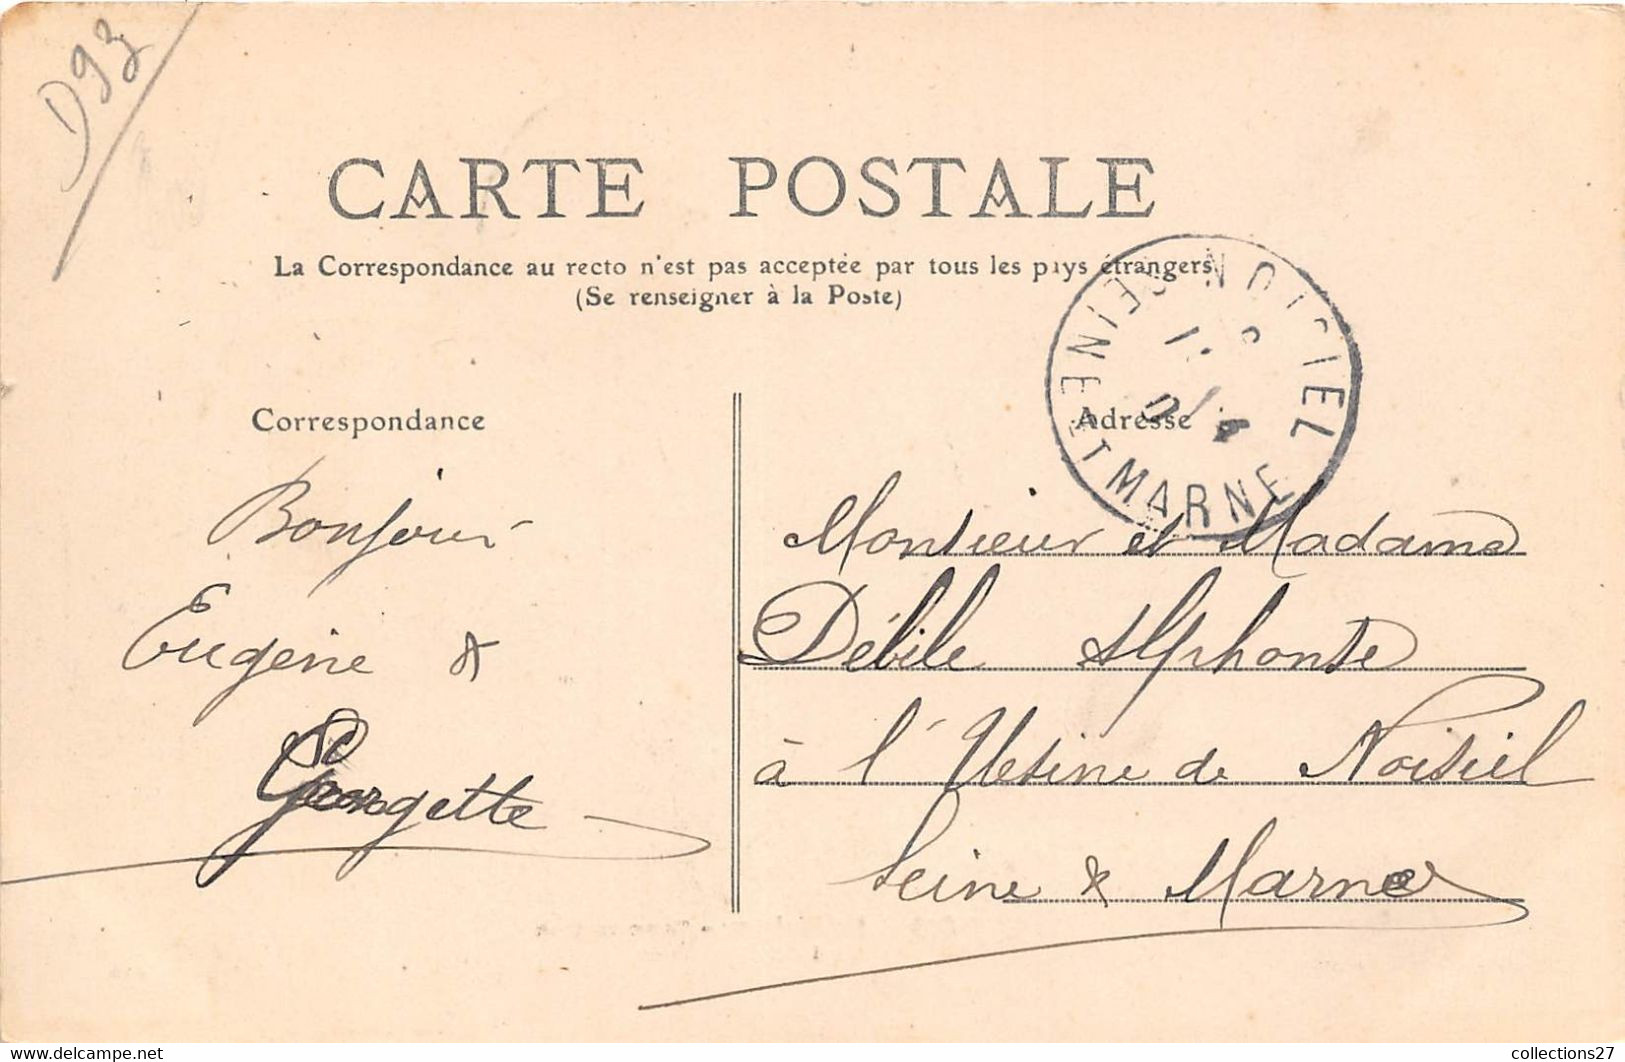 D93
CARTE POSTALE
La Correspondance au recto n'est pas acceptée par tous les pays étrangers
(Se renseigner à la Poste)
NOISIEL
SEINE ET MARNE
Correspondance
Adresse
Bonjour
Eugène &
Georgette
Monsieur et Madame
Débile Alphonse
à l'Usine de Noisiel
Seine & Marne
collections27